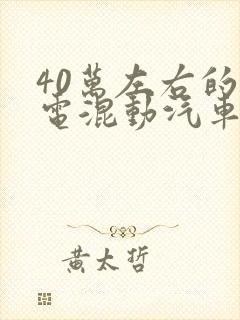 40萬左右的
電混動汽車
黃太哲